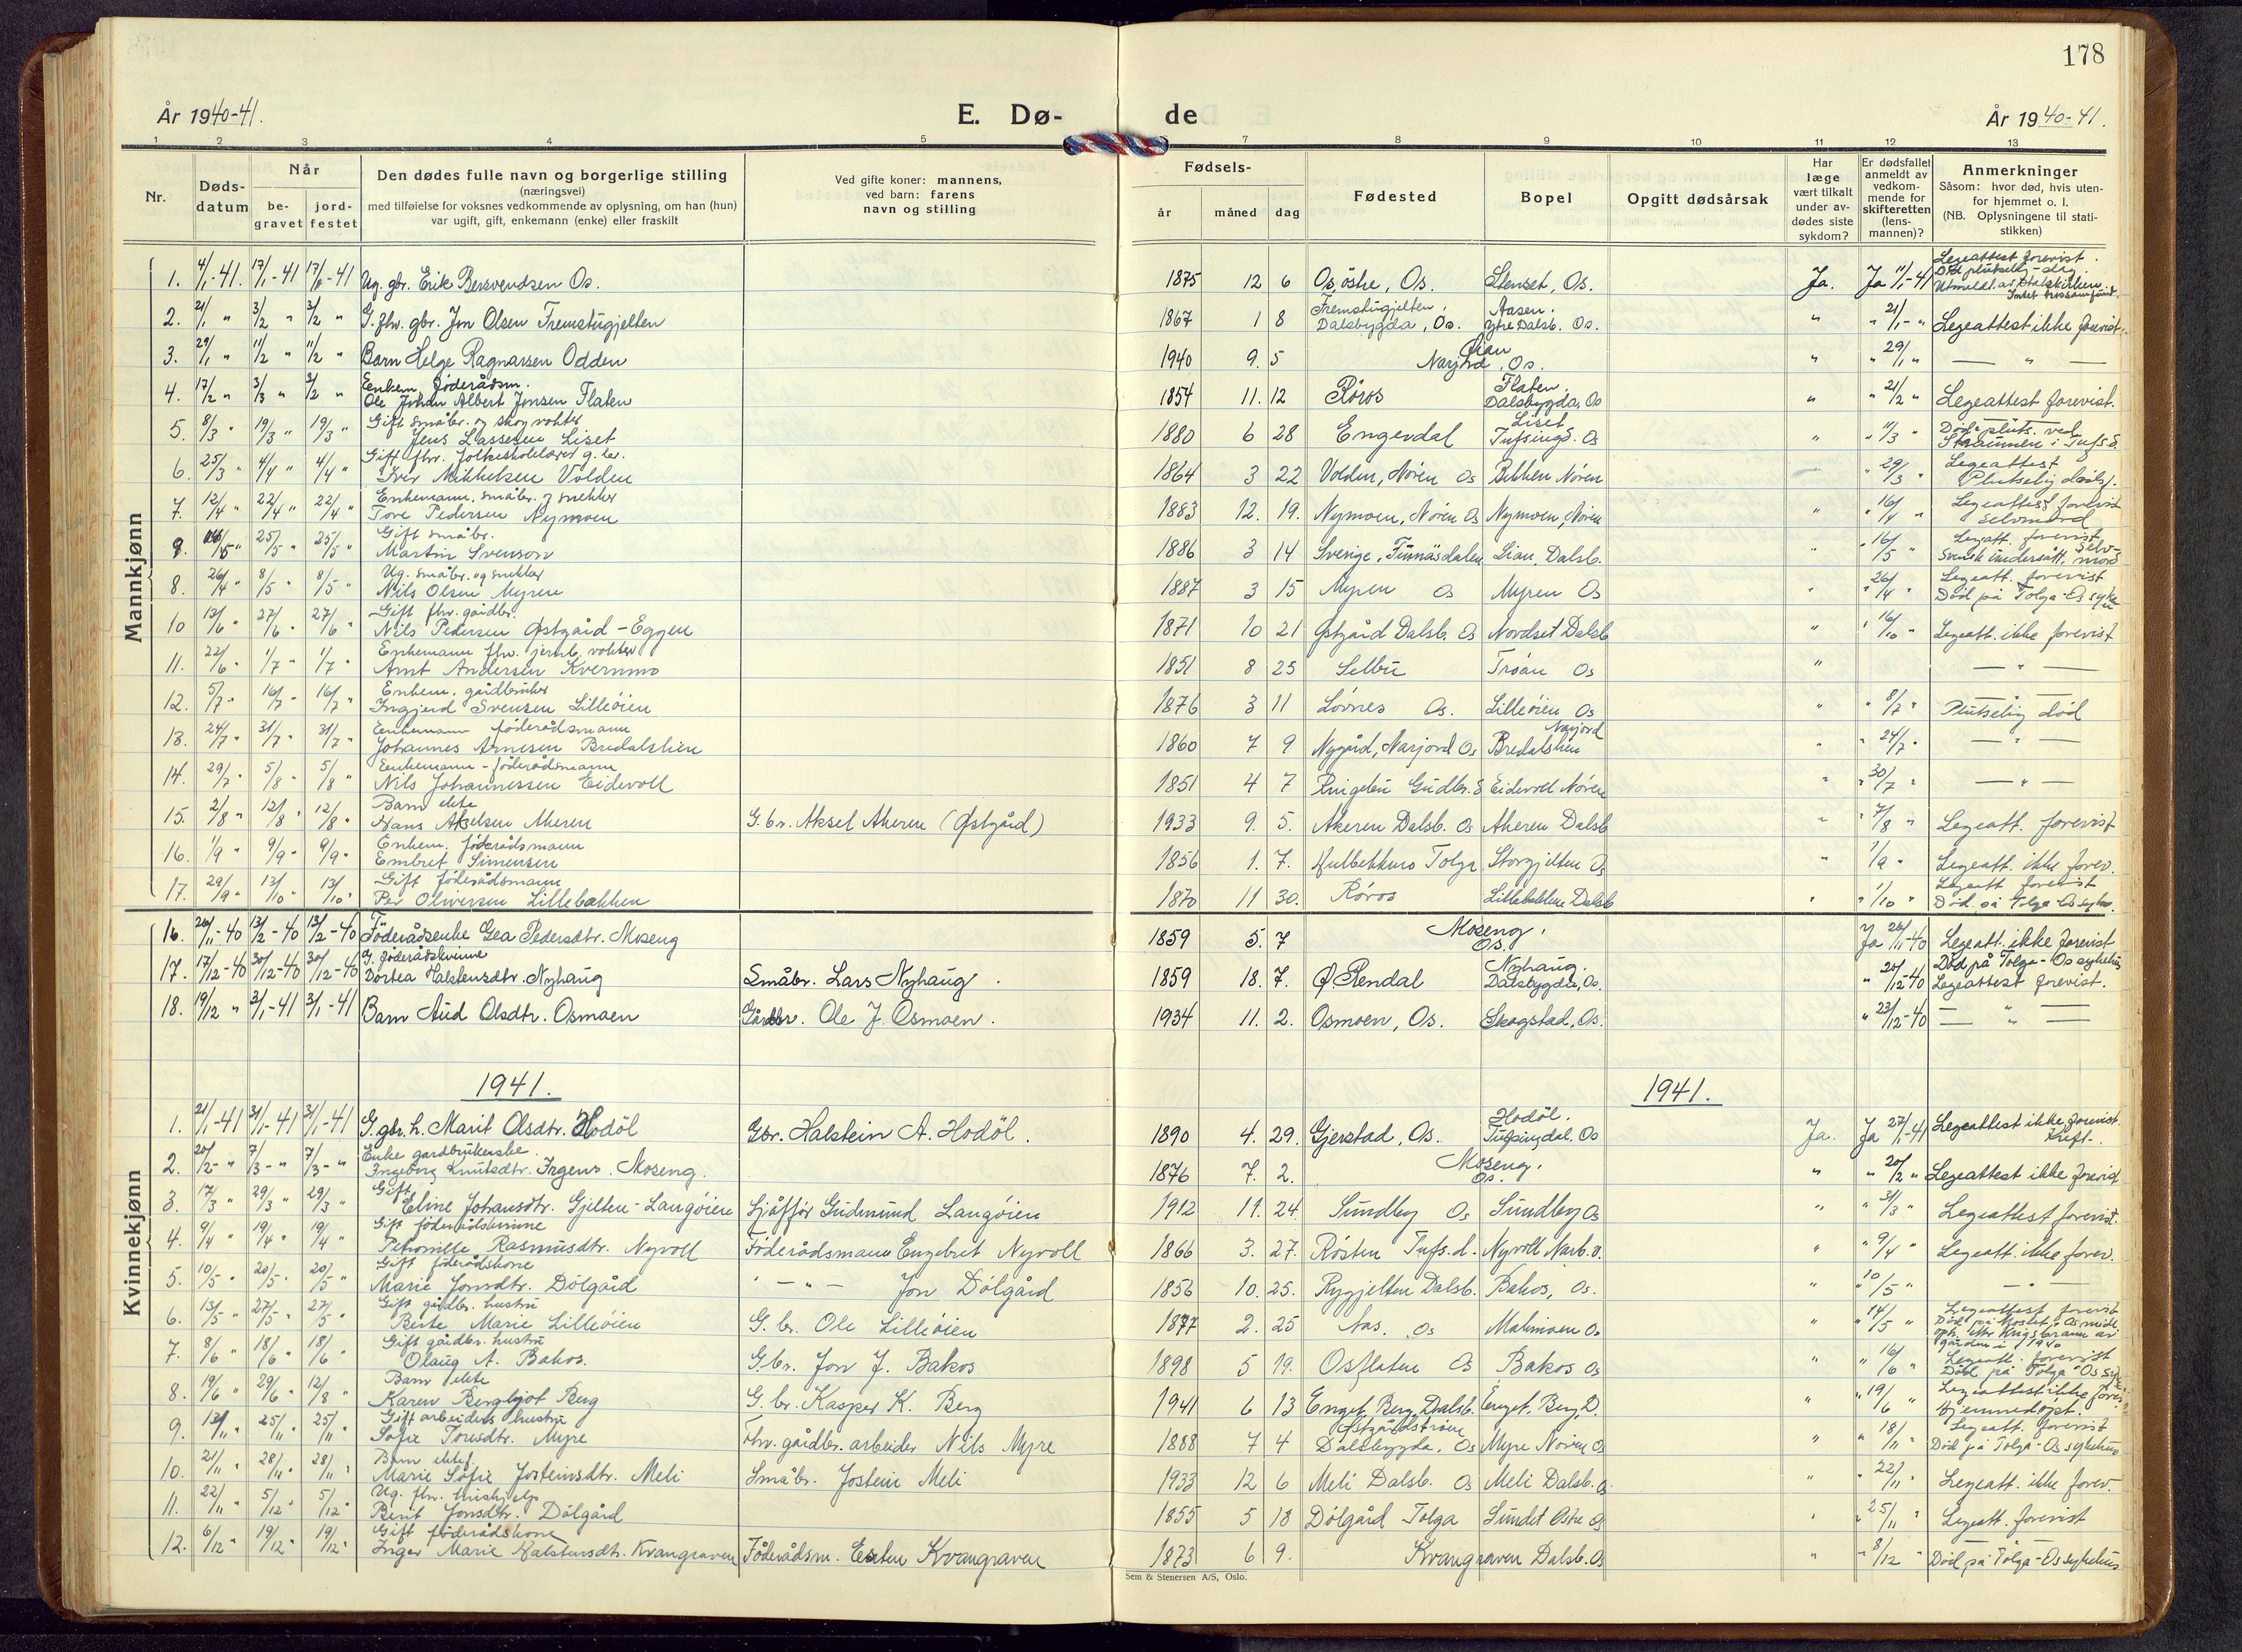 178
År 1940-41.
E. Dø-
de
År 1940-41.
1 2 3 4 5 6 7 8 9 10 11 12 13
Nr.
Døds-
datum
Når
be-
gravet
jord-
festet
Den dødes fulle navn og borgerlige stilling
(næringsvei)
med tilføielse for voksnes vedkommende av oplysning, om han (hun)
var ugift, gift, enkemann (enke) eller fraskilt
Ved gifte koner: mannens,
ved barn: farens
navn og stilling
Fødsels-
år måned dag
Fødested
Bopel
Opgitt dødsårsak
Har
læge
vært tilkalt
under av-
dødes siste
sykdom?
Er dødsfallet
anmeldt av
vedkom-
mende for
skifteretten
(lens-
mannen)?
Anmerkninger
Såsom: hvor død, hvis uten-
for hjemmet o. l.
(NB. Oplysningene til stati-
stikken)
Mannkjønn
1. 4/1-41. 17/1-41 17/1-41 Ug. gbr. Erik Bersvendsen Os. 1875 12 6 Os østre, Os. Stenset, Os. Ja. Ja 11/1-41 Legeattest forevist.
2. 21/1 " 3/2 " 3/2 " G. fhv. gbr. Jon Olsen Fremstugjelten 1867 1 8 Fremstugjelten, Dalsbygda, Os. Aasen, ytre Dalsb. Os. " " 21/1 - " Legeattest ikke forevist.
3. 29/1 " 11/2 " 11/2 " Barn Helge Ragnarsen Odden 1940 9. 5 Narjord, Os. " " 29/1 " — " —
4. 17/2 " 3/3 " 3/2 " Enkem. føderådsm. Ole Johan Albert Jonsen Flaten 1854 11. 12 Røros Flaten, Dalsbygda, Os " " 21/2 " Legeattest forevist.
5. 8/3 " 19/3 " 19/3 " Gift småbr. og skogvokter Jens Lassesen Liset 1880 6 28 Engerdal Liset Tufsingd. Os " " 11/3 " Død pluts. ved Straumen i Tufs.d.
6. 25/3 " 4/4 " 4/4 " Gift fhv. folkeskolelærer g. br. Iver Mikkelsen Volden 1864 3 22 Volden, Nøren Os Bekken Nøren " 29/3 " Legeattest Plutselig dødsf.
7. 12/4 " 22/4 " 22/4 " Enkemann, småbr. og snekker Tore Pedersen Nymoen 1883 12. 19. Nymoen, Nøren Os Nymoen, Nøren " " 16/4 " Legeattest forevist selvmord
9. 14/5 " 25/5 " 25/5 " Gift småbr. Martin Svenson 1886 3 14 Sverige, Funnäsdalen Lian, Dalsb. " " 16/5 " Legatt. forevist Svensk undersått, selvmord
8. 26/4 " 8/5 " 8/5 " Ug. småbr. og snekker Nils Olsen Myren 1887 3 15 Myren Os Myren Os " " 26/4 " Legeatt. forevist Død på Tolga-Os sykeh.
10 13/6 " 27/6 " 27/6 " Gift fhv. gårdbr. Nils Pedersen Østgård-Eggen 1871 10 21 Østgård Dalsb. Os Nordset Dalsb " " 16/10 " Legeatt. ikke forevist
11. 22/6 " 1/7 " 1/7 " Enkemann fhv. jernb. vokter Arnt Andersen Kvernmo 1851 8 25 Selbu Trøan Os " — " —
12. 5/7 " 16/7 " 16/7 " Enkem. gårdbruker Ingjerd Svensen Lilleøien 1876 3 11 Løvnes Os. Lilleøien Os " " 8/7 " Plutselig død
13. 24/7 " 31/7 " 31/7 " Enkemann føderådsmann Johannes Arnesen Bredalslien 1860 7 9 Nygård, Narjord Os Bredalslien Narjord " " 24/7 " — " —
14. 29/7 " 5/8 " 5/8 " Enkemann-føderådsmann Nils Johannessen Eidevoll 1851 4 7 Ringebu Gudbr.d Eidevoll Nøren " " 30/7 " — " —
15. 2/8 " 12/8 " 12/8 " Barn ekte Hans Akselsen Akeren G. br. Aksel Akeren (Østgård) 1933 9. 5. Akeren Dalsb. Os Akeren Dalsb " " 7/8 " Legeatt. forevist
16. 1/9 " 9/9 " 9/9 " Enkem. føderådsmann Embret Simensen 1856 1. 7. Tolga Storgjelten Os " 1/9 " Legeatt. ikke forev.
17. 29/9 " 13/10 " 13/10 " Gift føderådsmann Per Oliversen Lillebakken 1870 11 30. Røros Lillebakken Dalsb " " 1/10 " Legeatt forevist Død på Tolga-Os sykeh.
Kvinnekjønn
16. 26/11-40 13/2-40 13/2-40 Føderådsenke Gea Pedersdtr. Moseng 1859 5. 7 Moseng, Os. Ja 26/11-40 Legeatt. ikke forevist
17. 17/12-40 30/12-40 30/12-40 G. føderådskvinne Dortea Halstensdtr. Nyhaug Småbr. Lars Nyhaug. 1859 18. 7. Ø. Rendal Nyhaug, Dalsbygda, Os. " 20/12-40 Død på Tolga-Os sykehus Legeattest forevist.
18. 19/12 " 3/1-41 3/1-41 Barn Aud Olsdtr. Osmoen Gårdbr. Ole J. Osmoen. 1934 11. 2. Osmoen, Os. Skogstad, Os. " 23/12-40 — " —
1941. 1941.
1. 21/1-41 31/1-41 31/1-41 G. gbr. h. Marit Olsdtr. Hodøl Gbr. Halstein A. Hodøl. 1890 4. 29. Gjerstad, Os. Hodøl, Tufsingdal. Os Ja. Ja 27/1-41 Legeattest ikke forevist. Kreft.
2. 20/2- " 7/3- " 7/3- " Enke gardbrukerske. Ingeborg Knutsdtr. Irgens. Moseng. 1876 7. 2. Moseng, Os. " " 20/2 " Legeattest ikke forevist
3. 17/3 " 29/3 " 29/3 " Gift Eline Johansdtr. Gjelten-Langøien Sjåffør Gudmund Langøien 1912 11. 24. Sundby Os Sundby Os " " 31/3 " Legeattest forevist.
4. 9/4 " 19/4 " 19/4 " Gift føderådskvinne Petronille Rasmusdtr. Nyvoll Føderådsmann Engebret Nyvoll 1866 3. 27. Røsten Tufs.d. Nyvoll Narb. o. " " 9/4 " Legeatt. ikke forev.
5. 10/5 " 20/5 " 20/5 " Gift føderådskone Marie Jonsdtr. Dølgård — " — Jon Dølgård 1856 10. 25. Rygjelten Dalsb. Bakos, Os. " " 10/5 " — " —
6. 13/5 " 27/5 " 27/5 " Gift gårdbr. hustru Berte Marie Lilleøien G. br. Ole Lilleøien 1877 2. 25 Nas. Os Malmoen Os " " 14/5 " Legeattest forevist
7. 8/6 " 18/6 " 18/6 " Gift gårdbr. hustru Olaug A. Bakos. G. br. Jon J. Bakos 1898 5 19. Osflaten Os Bakos Os " " 16/6 " Legeatt. forevist Død på Tolga-Os syk.
8. 19/6 " 29/6 " 12/8 " Barn ekte Karen Bergljot Berg G. br. Kasper K. Berg 1941 6 13 Enget, Berg, Dalsb. Enget, Berg, D. " " 19/6 " Legeattest ikke forev. Hjemmedøpt.
9. 13/11 " 25/11 " 25/11 " Gift arbeiders hustru Sofie Toresdtr. Myre Fhv. gårdbr. arbeider Nils Myre 1888 7 4 Østgårdstrøen Dalsbygda, Os Myre Nøren Os " " 18/11 " Legeatt. forevist Død på Tolga-Os sykehus
10. 21/11 " 28/11 " 28/11 " Barn ektef. Marie Sofie Josteinsdtr. Meli Småbr. Jostein Meli 1933 12 6 Meli Dalsb. Os Meli Dalsb. o. " " 22/11 " Legeatt. ikke forev.
11. 22/11 " 5/12 " 5/12 " Ug. fhv. Berit Jonsdtr. Dølgård 1855 5 18 Dølgård Tolga Sundet Østre Os " " 25/11 " Legeatt. forevist
12. 6/12 " 19/12 " 19/12 " Gift føderådskone Inger Marie Halstensdtr. Kvangraven Føderådsm. Esten Kvangraven 1873 6 9. Kvangraven Dalsb. Os " " 8/12 " Død på Tolga-Os sykehus
Sem & Stenersen A/S, Oslo.